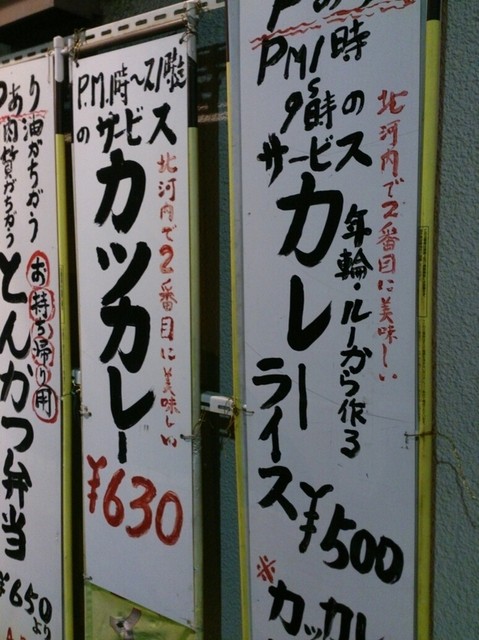 PM1時
〜9時の
サービス
カレーライス
年輪・ルーから作る
北河内で2番目に美味しい
¥500
※
P.M.1時〜
のサービス
カツカレー
北河内で2番目に美味しい
¥630
油がちがう
肉質がちがう
お持ち帰り用
とんかつ弁当
¥650より